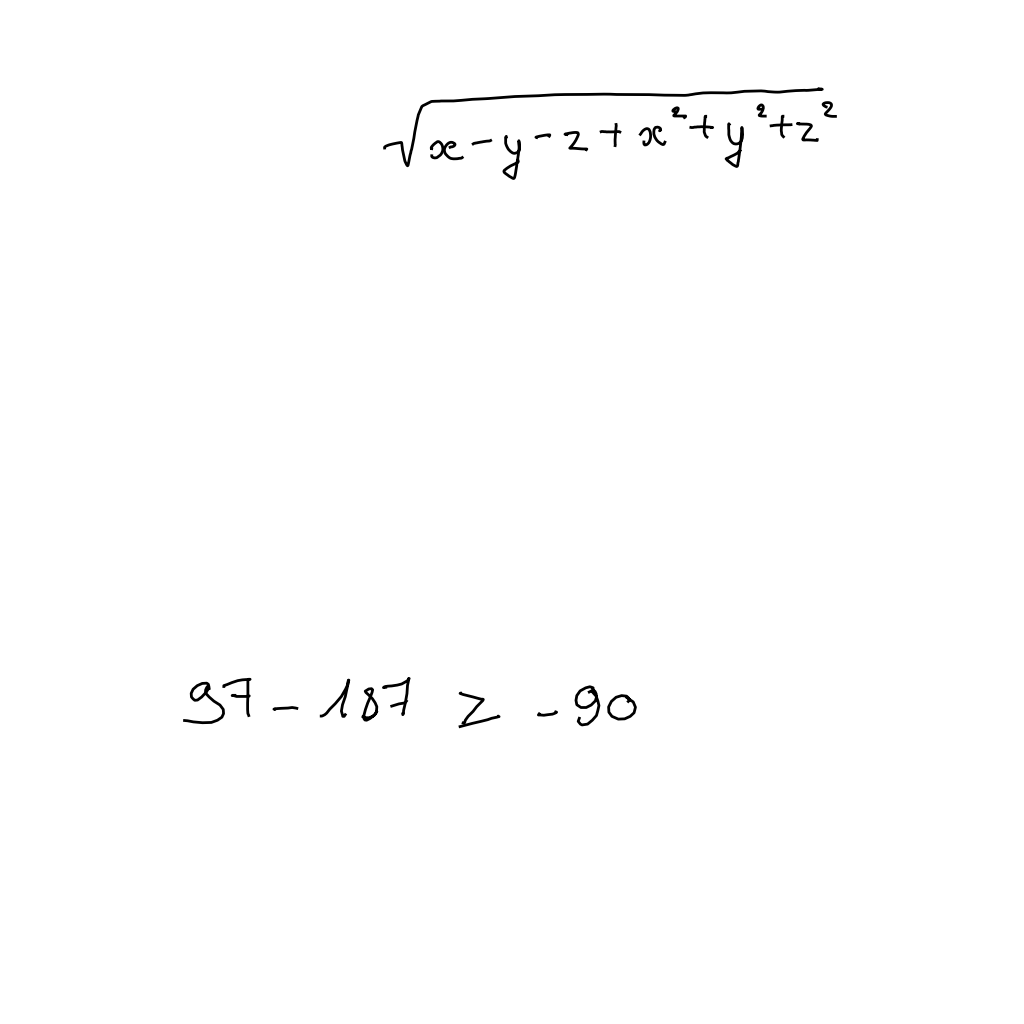 √(x - y - z + x² + y² + z²)
97 - 187 ≥ -90